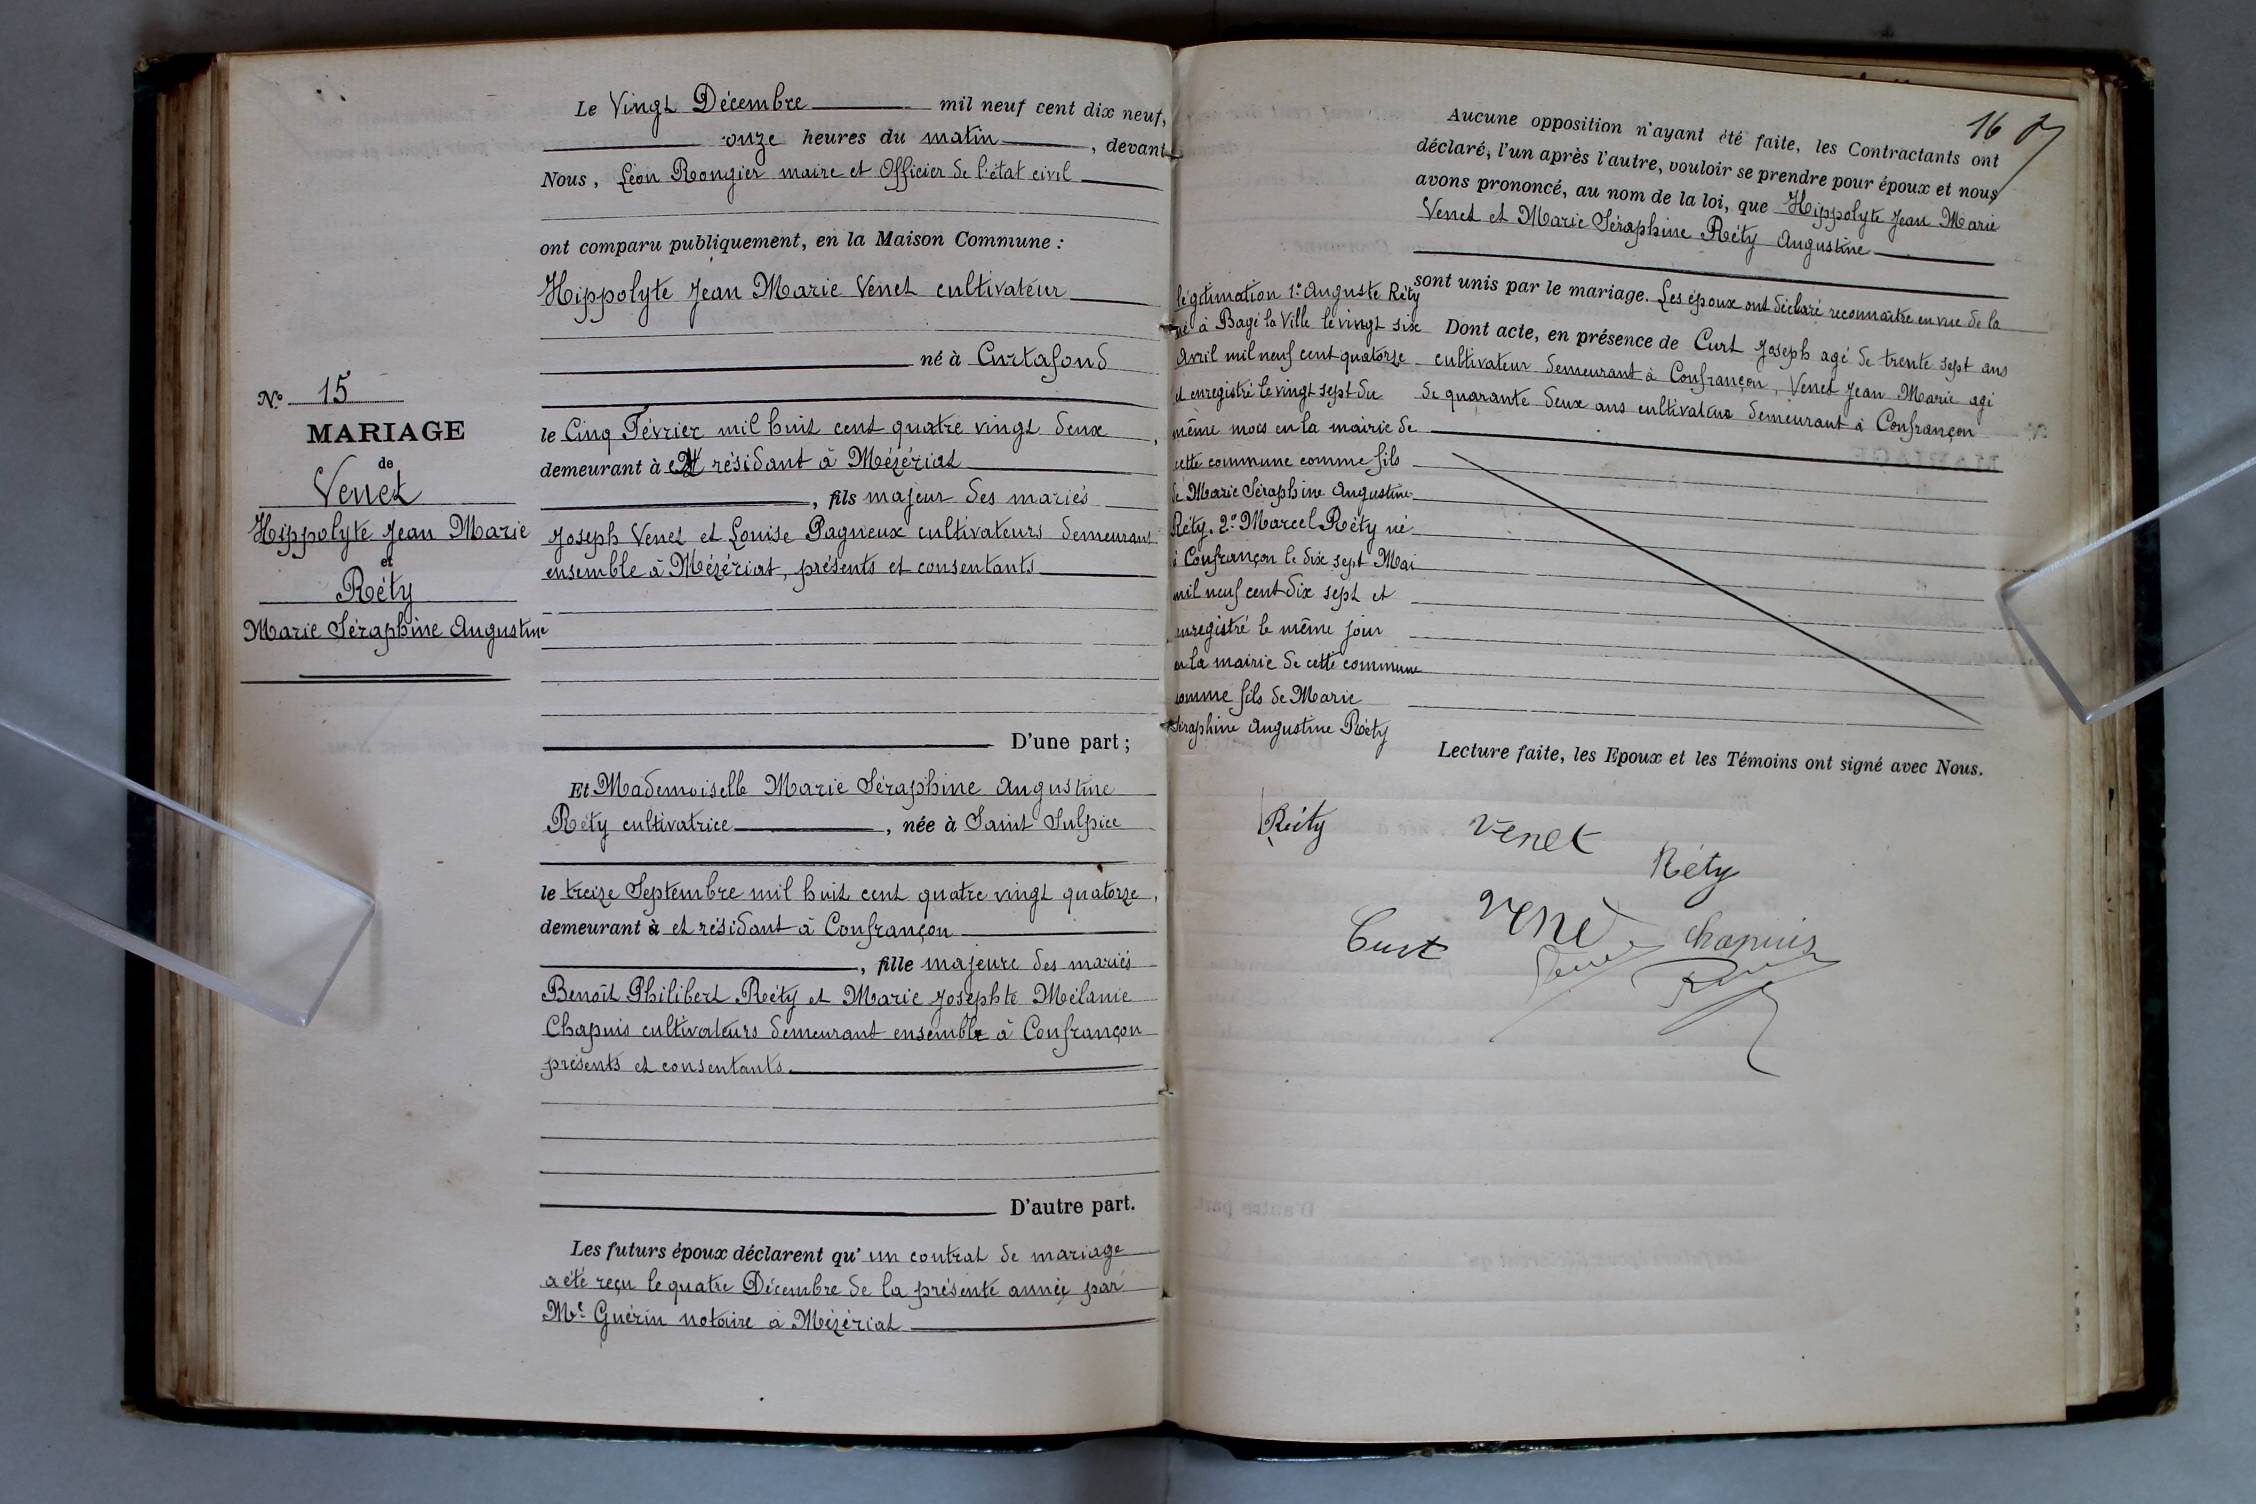 Le Vingt Décembre mil neuf cent dix neuf,
onze heures du matin, devant
Nous, Léon Rongier maire et Officier de l'état civil
ont comparu publiquement, en la Maison Commune :
Hippolyte Jean Marie Venet cultivateur
né à Curtafond
le Cinq Février mil huit cent quatre vingt deux,
demeurant à et résidant à Mézériat
, fils majeur des mariés
Joseph Venet et Louise Pagneux cultivateurs demeurant
ensemble à Mézériat, présents et consentants
D'une part ;
Et Mademoiselle Marie Séraphine Augustine
Réty cultivatrice, née à Saint Sulpice
le treize Septembre mil huit cent quatre vingt quatorze,
demeurant à et résidant à Confrançon
, fille majeure des mariés
Benoît Philibert Réty et Marie Josephte Mélanie
Chapuis cultivateurs demeurant ensemble à Confrançon
présents et consentants.
D'autre part.
Les futurs époux déclarent qu'un contrat de mariage
a été reçu le quatre Décembre de la présente année par
Me Guérin notaire à Mézériat
No 15
MARIAGE
de
Venet
Hippolyte Jean Marie
et
Réty
Marie Séraphine Augustine
16
Aucune opposition n'ayant été faite, les Contractants ont
déclaré, l'un après l'autre, vouloir se prendre pour époux et nous
avons prononcé, au nom de la loi, que Hippolyte Jean Marie
Venet et Marie Séraphine Réty Augustine
sont unis par le mariage. Les époux ont déclaré reconnaître en vue de la
légitimation 1o Auguste Réty
né à Bagé la Ville le vingt six
Avril mil neuf cent quatorze
et enregistré le vingt sept du
même mois en la mairie de
cette commune comme fils
de Marie Séraphine Augustine
Réty. 2o Marcel Réty né
à Confrançon le dix sept Mai
mil neuf cent dix sept et
enregistré le même jour
en la mairie de cette commune
comme fils de Marie
Séraphine Augustine Réty
Dont acte, en présence de Curt Joseph agé de trente sept ans
cultivateur demeurant à Confrançon, Venet Jean Marie agé
de quarante deux ans cultivateur demeurant à Confrançon
Lecture faite, les Epoux et les Témoins ont signé avec Nous.
Réty
Venet
Réty
Curt
Venet
Chapuis